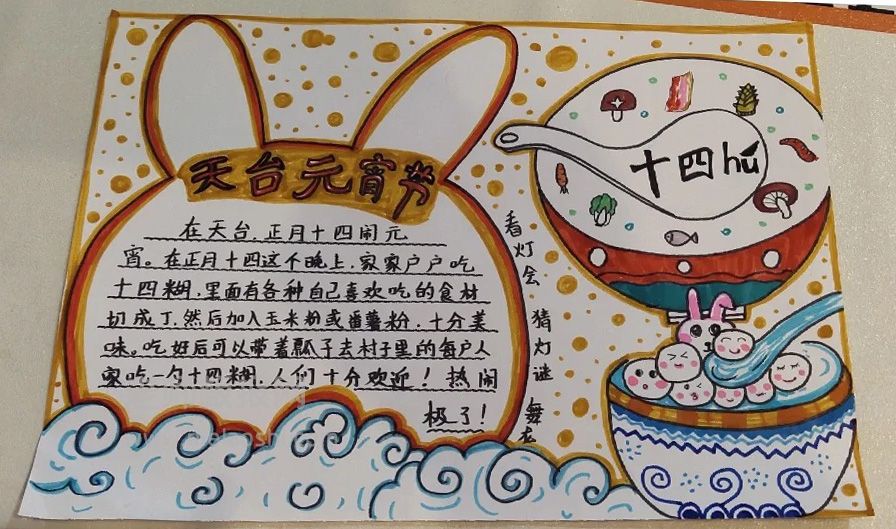 天台元宵节
在天台,正月十四闹元
宵。在正月十四这个晚上,家家户户吃
十四糊,里面有各种自己喜欢吃的食材
切成丁,然后加入玉米粉或番薯粉,十分美
味。吃好后可以带着瓢子去村子里的每户人
家吃一勺十四糊,人们十分欢迎!热闹
极了!
十四hú
看灯会
猜灯谜
舞龙